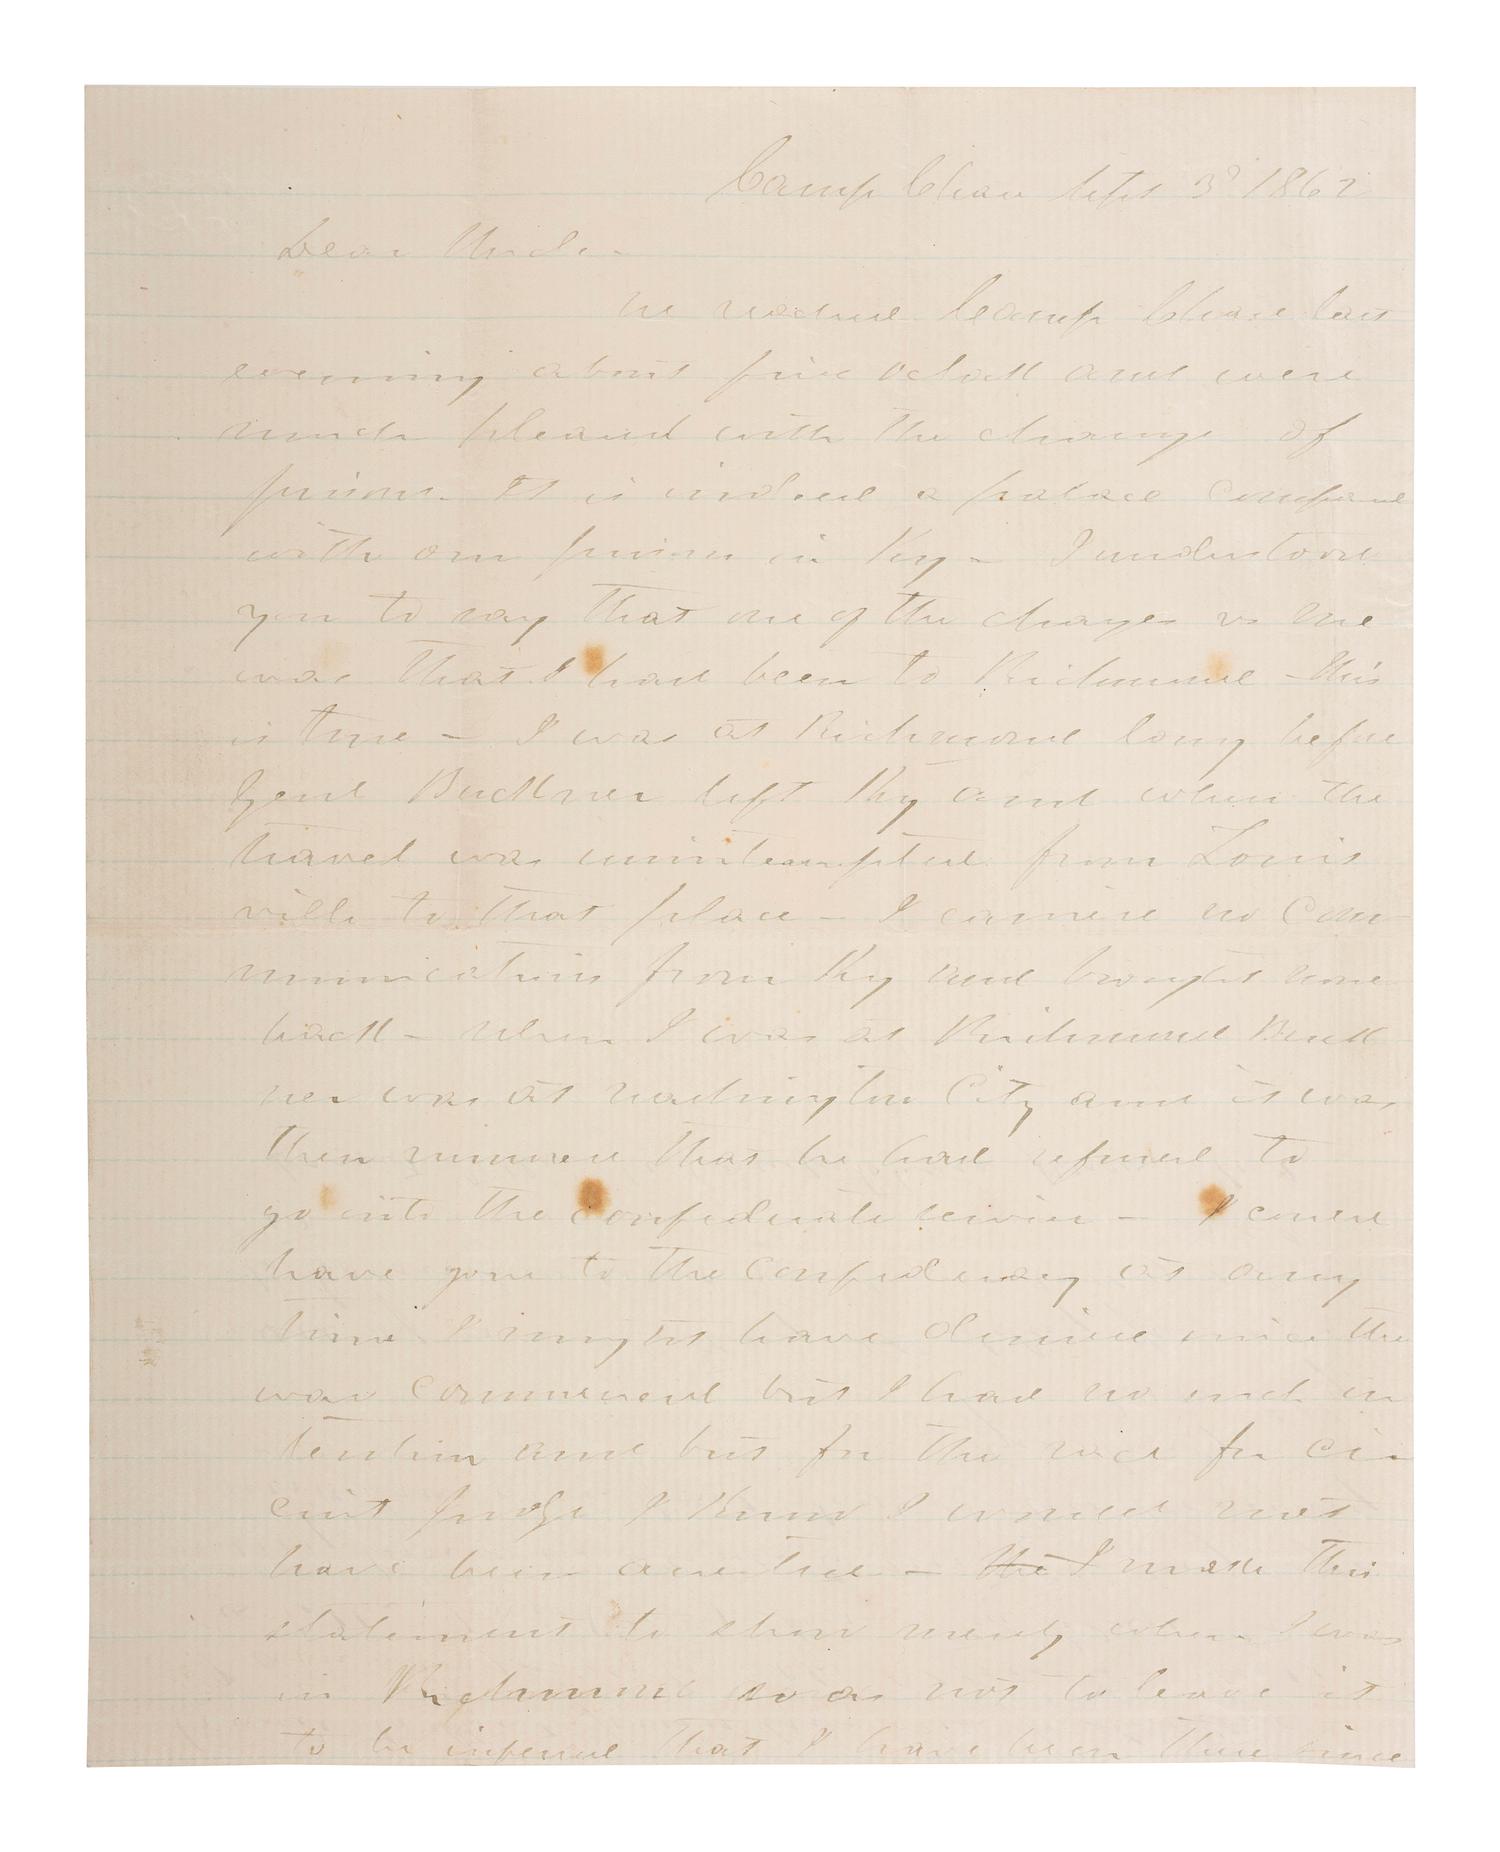 Camp Chase Sept 3d 1862
Dear Uncle -
We reached Camp Chase last
evening about five oclock and were
much pleased with the change of
prisons. It is indeed a palace compared
with our prison in Ky - I understood
you to say that one of the charges vs me
was that I had been to Richmond - this
is true - I was at Richmond long before
Genl Buckner left Ky and when the
travel was uninterrupted from Louis
ville to that place - I carried no com-
munications from Ky and brought none
back - when I was at Richmond Buck
ner was at Washington City and it was
then rumored that he had refused to
go into the Confederate service - I could
have gone to the Confederacy at any
time I might have desired since the
war commenced but I had no such in
tention and but for the race for cir
cuit judge I know I would not
have been arrested - the I make this
statement to show merely when I was
in Richmond so as not to leave it
to be inferred that I have been there since